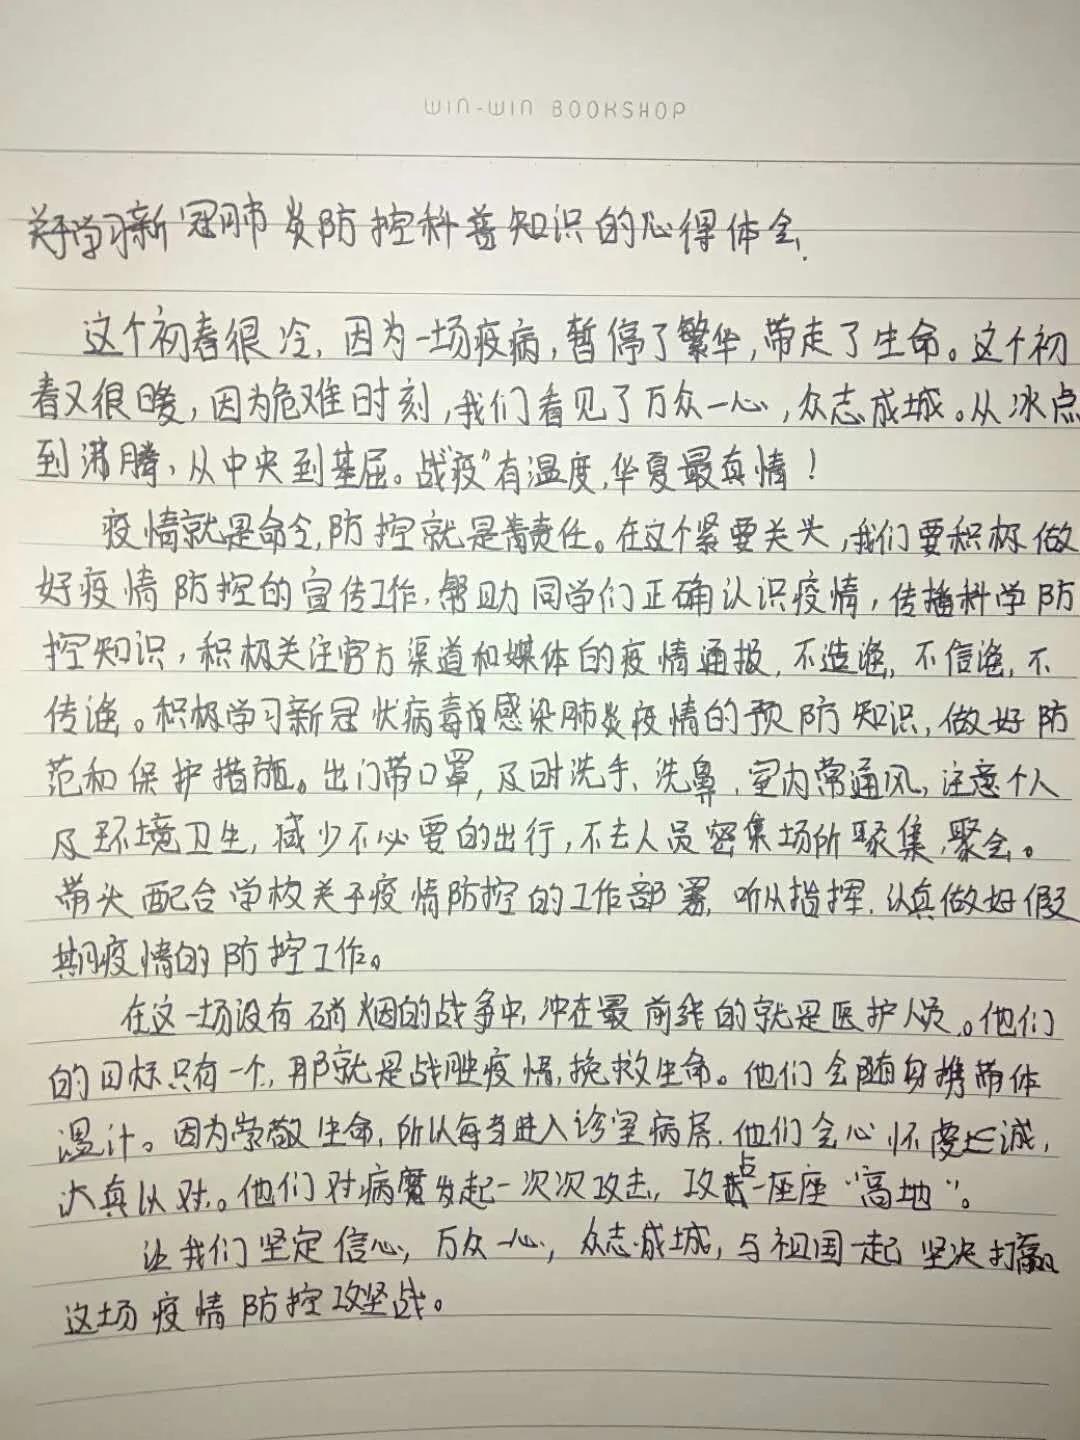 WIN-WIN BOOKSHOP
关于学习新冠肺炎防控科普知识的心得体会.
这个初春很冷,因为一场疫病,暂停了繁华,带走了生命。这个初
春又很暖,因为危难时刻,我们看见了万众一心,众志成城。从冰点
到沸腾、从中央到基层。战疫"有温度,华夏最真情!
疫情就是命令,防控就是责任。在这个紧要关头,我们要积极做
好疫情防控的宣传工作,帮助同学们正确认识疫情,传播科学防
控知识,积极关注官方渠道和媒体的疫情通报,不造谣,不信谣,不
传谣。积极学习新冠状病毒感染肺炎疫情的预防知识,做好防
范和保护措施。出门带口罩,及时洗手、洗鼻、室内常通风,注意个人
及环境卫生,减少不必要的出行,不去人员密集场所聚集,聚会。
带头配合学校关于疫情防控的工作部署,听从指挥,认真做好假
期疫情的防控工作。
在这一场没有硝烟的战争中,冲在最前线的就是医护人员。他们
的目标只有一个,那就是战胜疫情,挽救生命。他们会随身携带体
温计。因为崇敬生命,所以每次进入诊室病房,他们会心怀虔诚,
认真以对。他们对病魔发起一次次攻击,攻占一座座“高地”。
让我们坚定信心,万众一心,众志成城,与祖国一起坚决打赢
这场疫情防控攻坚战。